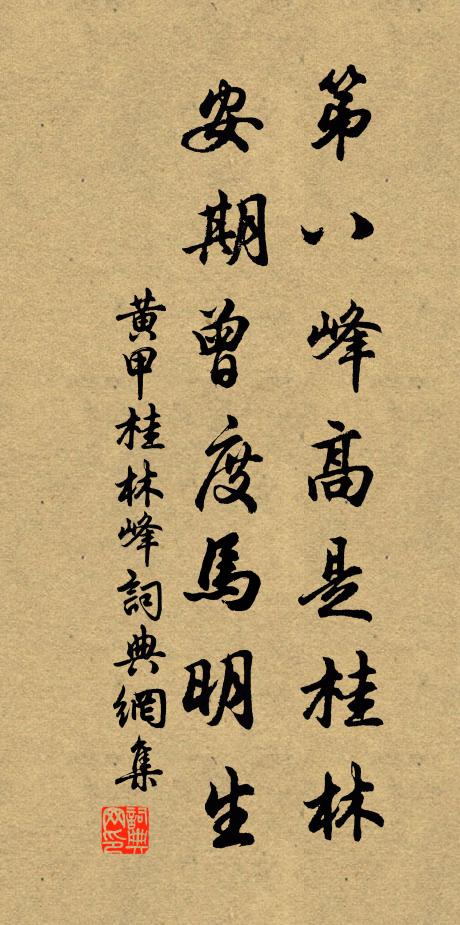 第八峰高是桂林
安期曾度馬明生
黃甲桂林峰詞典網集
詞典網印